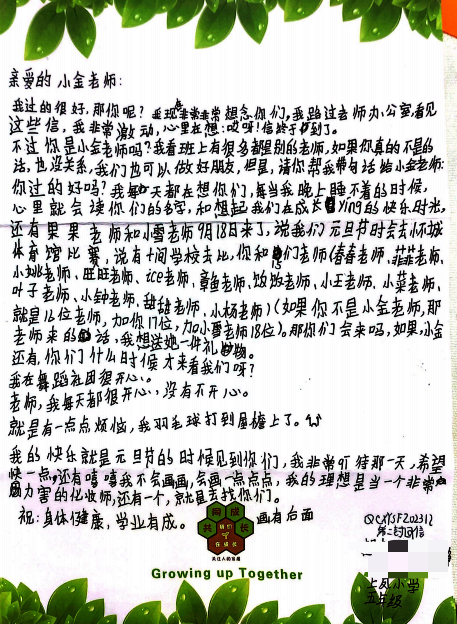 亲爱的小金老师:
我过的很好,那你呢?我现在非常非常想念你们,我路过老师办公室看见
这些信,我非常激动,心里在想:哎呀!信终于到了。
不过你是小金老师吗?我看班上有很多都是别的老师,如果你真的不是的
话,也没关系,我们也可以做好朋友,但是,请你帮我带句话给小金老师:
你过的好吗?我每天都在想你们,每当我晚上睡不着的时候,
心里就会读你们的名字,和想起我们在成长ying的快乐时光,
还有果果老师和小雪老师9月18日来了,说我们元旦节时会去怀城
体育馆比赛,说有十间学校去比,你和们老师(春春老师、菲菲老师、
小姚老师、旺旺老师、ice老师、章鱼老师、饭饭老师、小王老师、小菜老师、
叶子老师、小钟老师、甜甜老师、小杨老师)(如果你不是小金老师,那
就是16位老师,加你17位,加小雪老师18位)。那你们会来吗,如果小金
老师来的话,我想送她一件礼物。
还有,你们什么时候才来看我们呀?
我在舞蹈社团很开心。
老师,我每天都很开心,没有不开心。
就是有一点点烦恼,我羽毛球打到屋檐上了。
我的快乐就是元旦节的时候见到你们,我非常期待那一天,希望
快一点,还有嘻嘻我不会画画,会画一点点点,我的理想是当一个非常
厉害的化妆师,还有一个,就是去找你们。
祝:身体健康,学业有成。
画有后面
同成
共长
在成长
关注人的发展
Growing up Together
QCXYSF202312
第二封回信
上凤小学
五年级